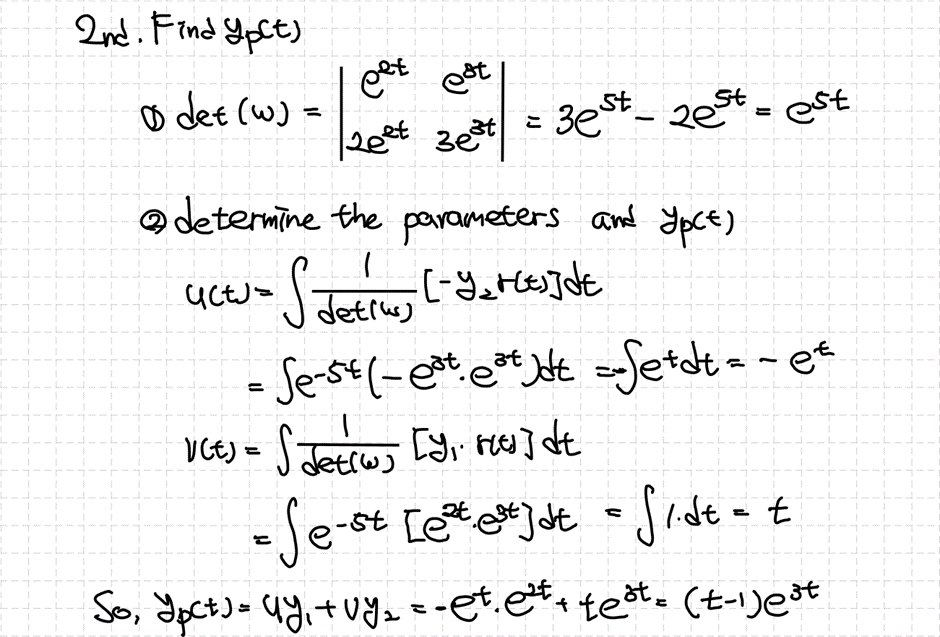 2nd. Find yp(t)
① det(w) = | e^{2t} e^{3t} ; 2e^{2t} 3e^{3t} | = 3e^{5t} - 2e^{5t} = e^{5t}
② determine the parameters and yp(t)
u(t) = ∫ 1/det(w) [-y₂r(t)]dt
= ∫e^{-5t}(-e^{3t}·e^{3t})dt = -∫e^t dt = -e^t
v(t) = ∫ 1/det(w) [y₁·r(t)]dt
= ∫e^{-5t}[e^{2t}·e^{3t}]dt = ∫1·dt = t
So, yp(t) = uy₁ + vy₂ = -e^t·e^{2t} + te^{3t} = (t-1)e^{3t}